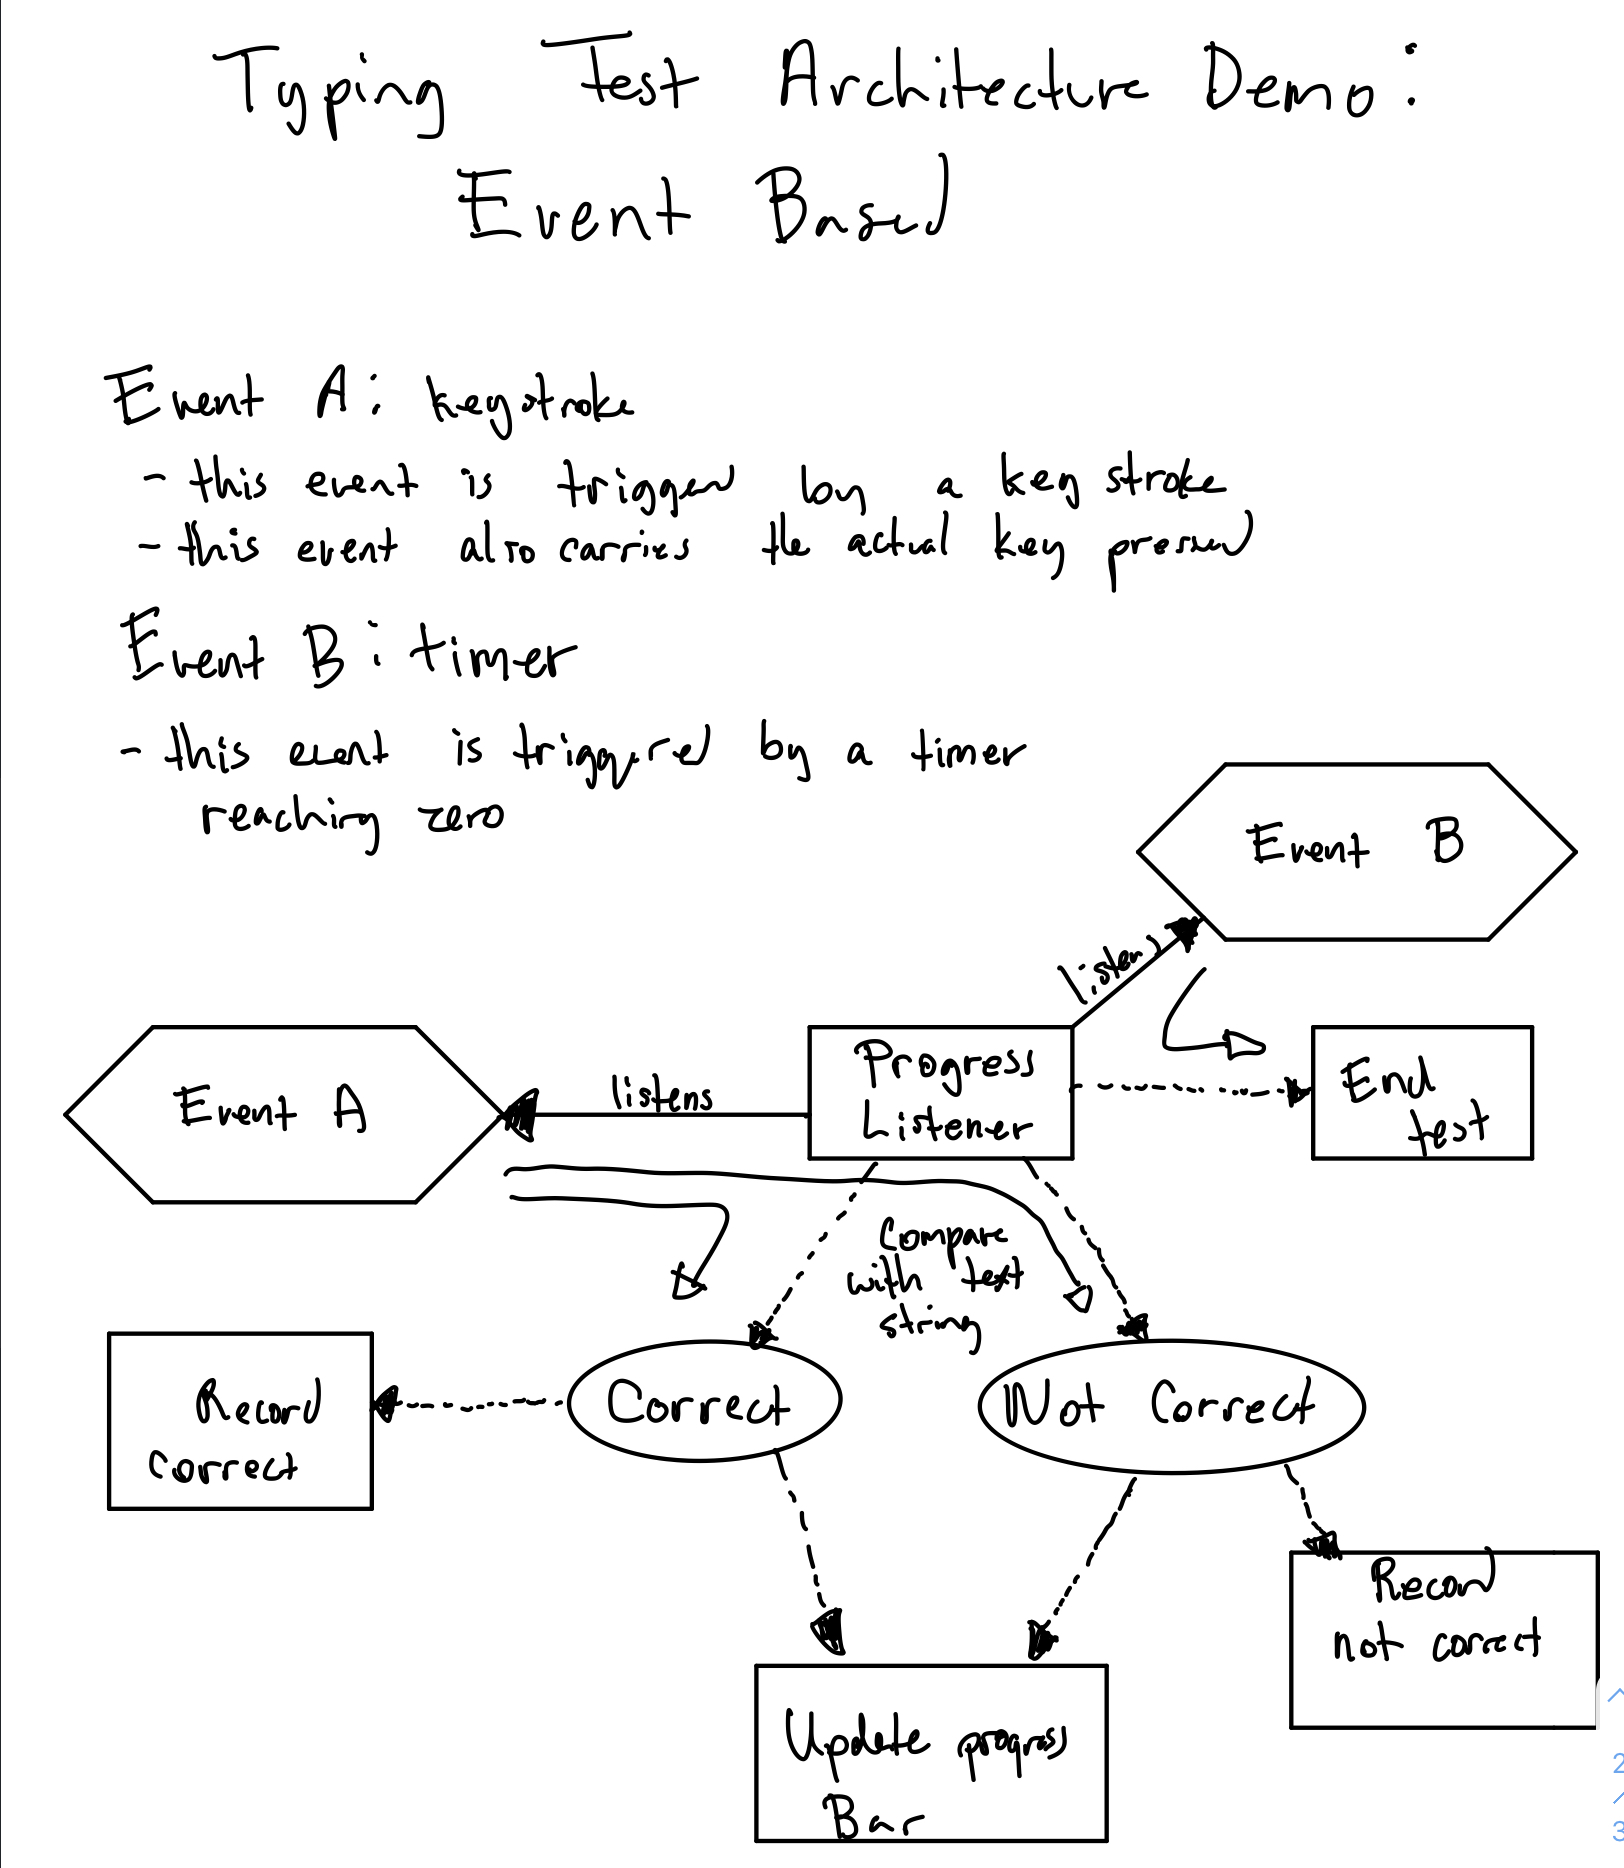 Typing Test Architecture Demo:
Event Based
Event A: keystroke
- this event is trigger by a key stroke
- this event also carries the actual key pressed
Event B: timer
- this event is triggered by a timer
reaching zero
Event B
listens
Event A
listens
Progress
Listener
End
test
Compare
with text
string
Record
Correct
Correct
Not Correct
Record
not correct
Update progress
Bar
2
3